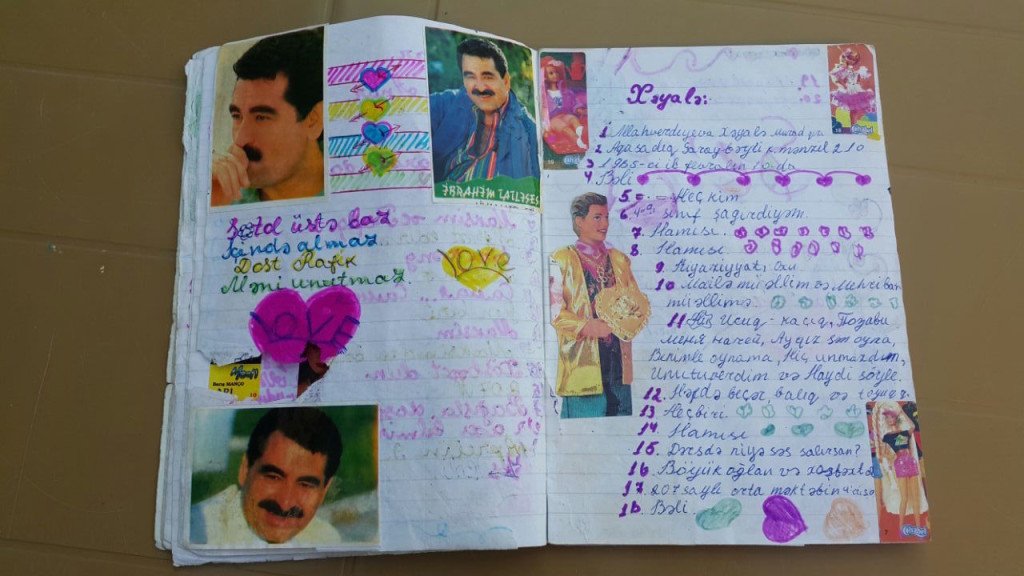 ЕВRAHEM TATLESES
Şetəl üstə baz
Jandə almaz
Dost Rafik
Məni unutmaz.
LOVE
LOVE
Barış MANÇO
10
Xəyalə:
1 Allahverdiyeva Xəyalə Murad
2 Ağasadıq Gəraybəyli k. mənzil 210
3 1985-ci il fevralın 10-da
4 Bəli
5 - Heç kim
6 sinif şagirdiyəm.
7. Hamısı.
8. Hamısı
9 Riyaziyyatı
10 Mailə müəllim və Mehriban
müəllimə.
11 Uçuq-kaçıq, Позави
меня ночой, Aykız
Benimle oynama, Hiç unmazdım,
Unutuverdim və Haydi söyle.
12. Həftə becər, balıq və toyuq
13 Heçbiri
14. Hamısı
15. Dərsdə niyə səs salırsan?
16 Böyük oğlan və xoşbəxt
17. 207 saylı orta məktəbin
18. Bəli.